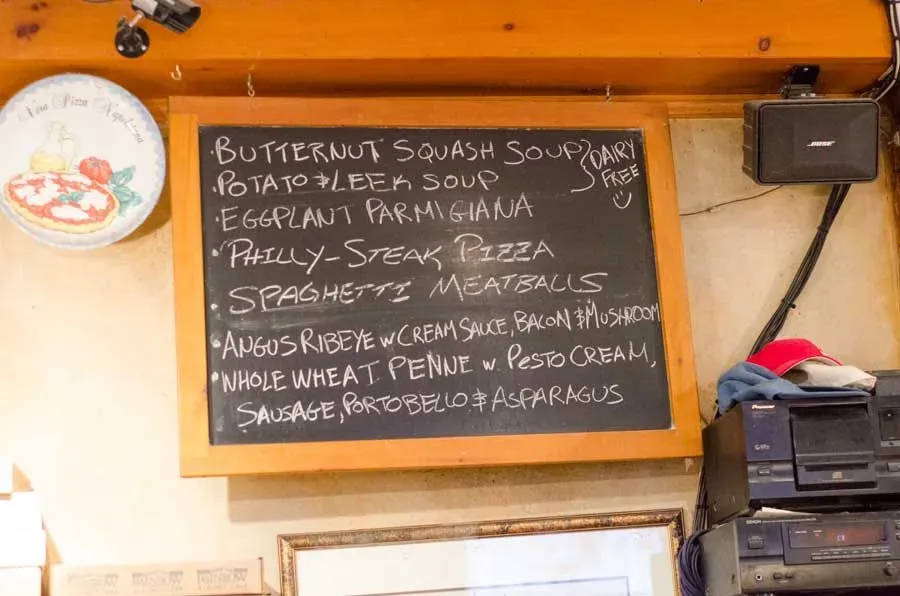 Vera Pizza Napoletana
·BUTTERNUT SQUASH SOUP
·POTATO & LEEK SOUP
} DAIRY
FREE
·EGGPLANT PARMIGIANA
·PHILLY-STEAK PIZZA
·SPAGHETTI MEATBALLS
·ANGUS RIBEYE w CREAM SAUCE, BACON & MUSHROOM
·WHOLE WHEAT PENNE w PESTO CREAM,
SAUSAGE, PORTOBELLO & ASPARAGUS
BOSE
Pioneer
DENON